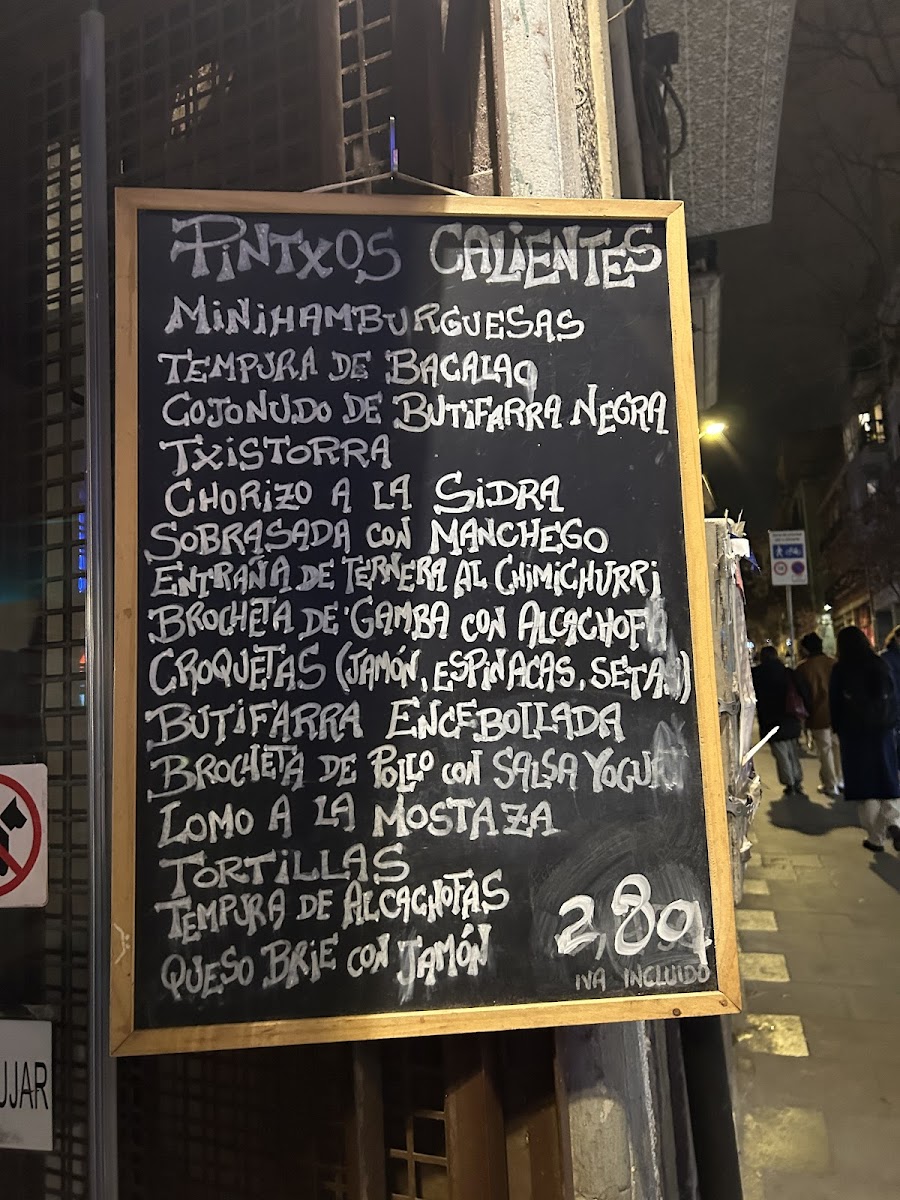 PINTXOS CALIENTES
MINIHAMBURGUESAS
TEMPURA DE BACALAO
COJONUDO DE BUTIFARRA NEGRA
TXISTORRA
CHORIZO A LA SIDRA
SOBRASADA CON MANCHEGO
ENTRAÑA DE TERNERA AL CHIMICHURRI
BROCHETA DE GAMBA CON ALCACHOFA
CROQUETAS (JAMÓN, ESPINACAS, SETAS)
BUTIFARRA ENCEBOLLADA
BROCHETA DE POLLO CON SALSA YOGURT
LOMO A LA MOSTAZA
TORTILLAS
TEMPURA DE ALCACHOFAS
QUESO BRIE CON JAMÓN
2,80
IVA INCLUIDO
UJAR